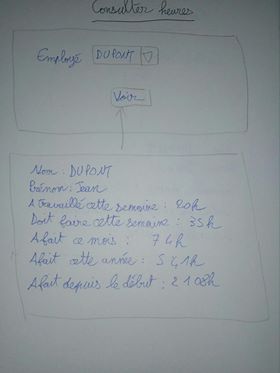 Consulter heures
Employé DUPONT
Voir
Nom : DUPONT
Prénom : Jean
A travaillé cette semaine : 20h
Doit faire cette semaine : 35h
A fait ce mois : 74h
A fait cette année : 541h
A fait depuis le début : 2108h